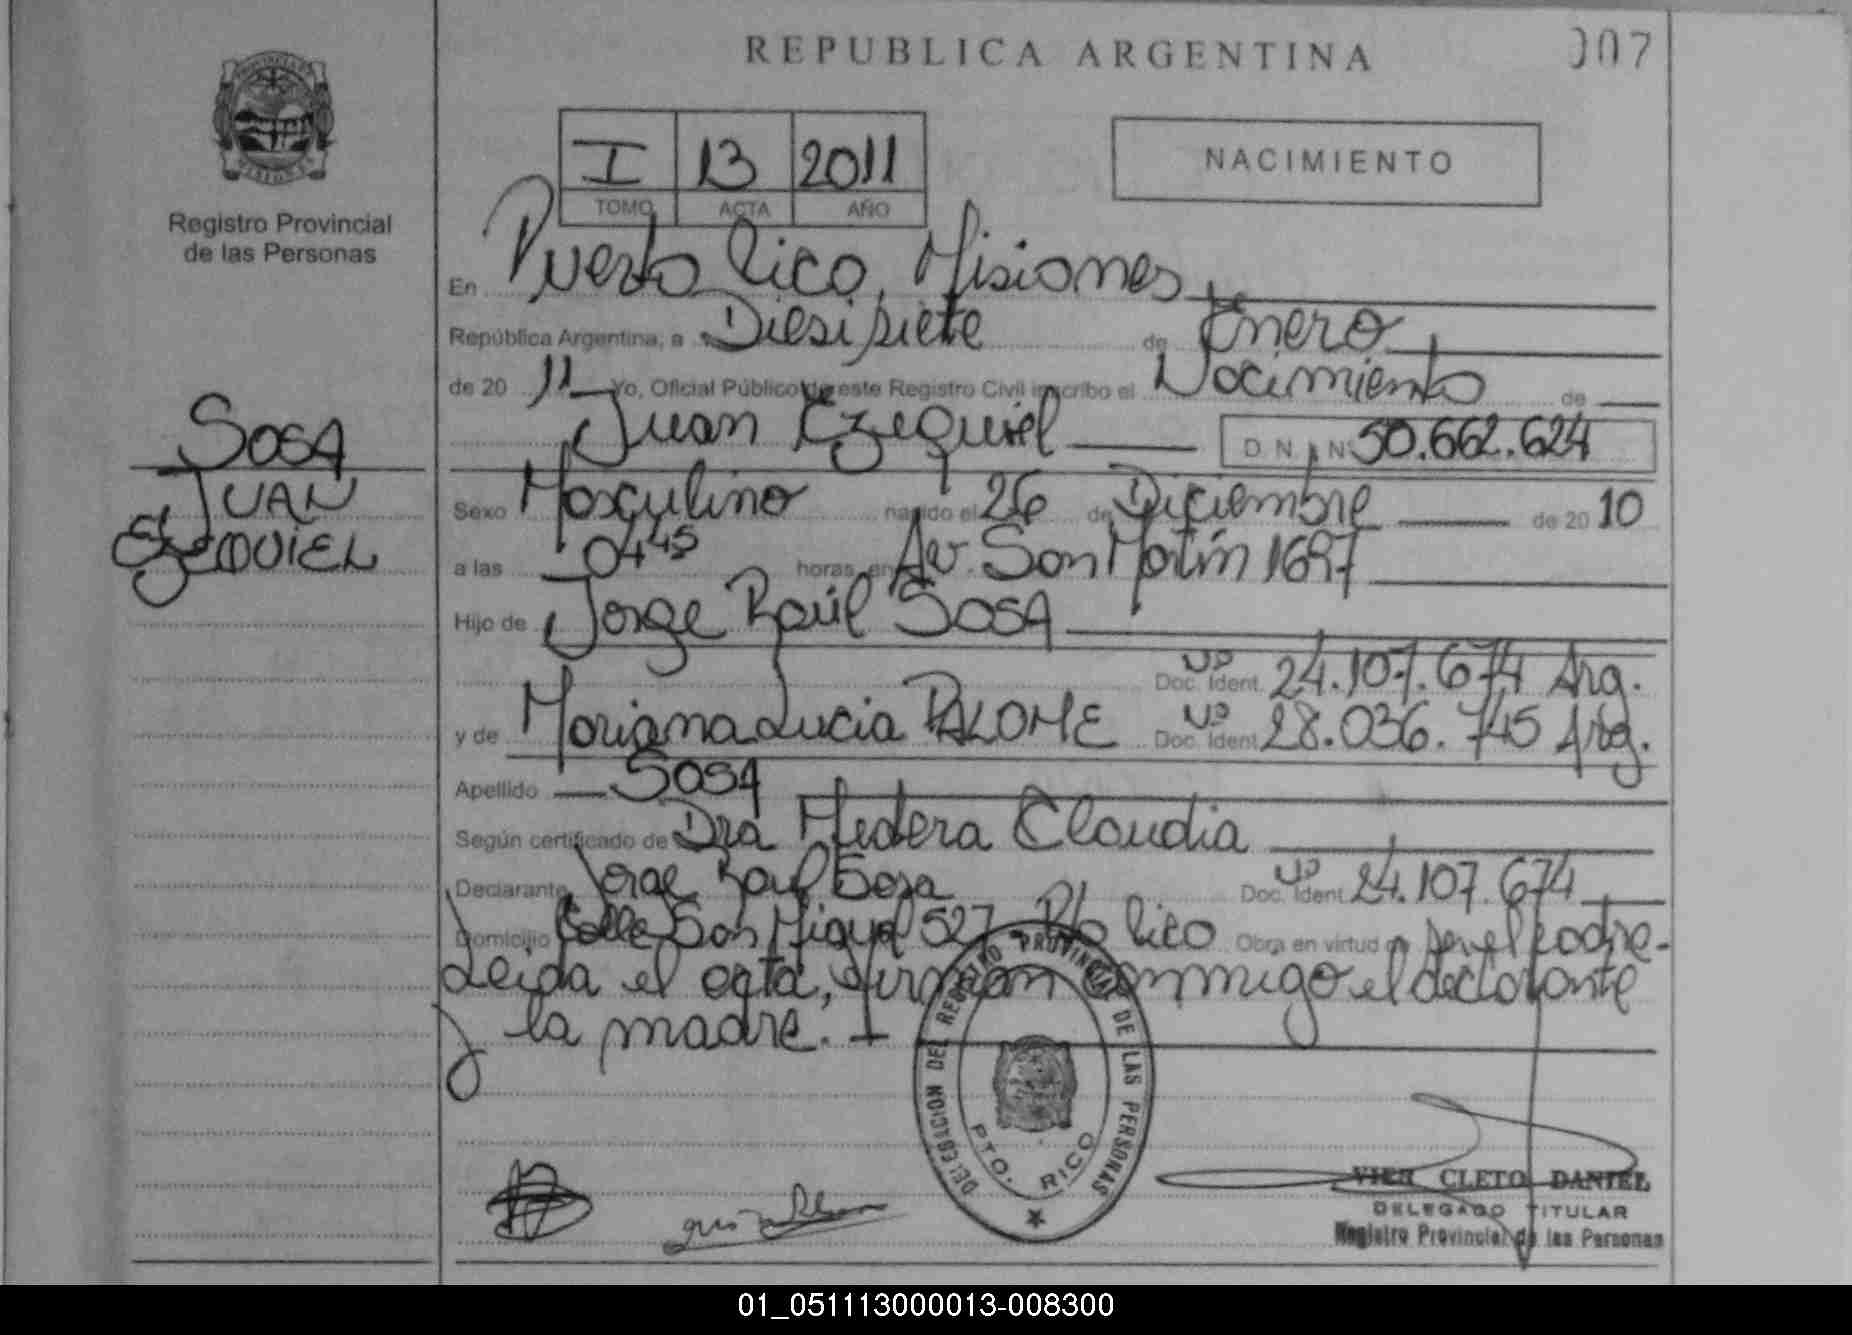 REPUBLICA ARGENTINA
007
PROVINCIA DE
MISIONES
Registro Provincial
de las Personas
I 13 2011
TOMO ACTA AÑO
NACIMIENTO
En Puerto Rico, Misiones
República Argentina, a Diesisiete de Enero
de 20 11 Yo, Oficial Público de este Registro Civil inscribo el Nacimiento de
Juan Ezequiel D.N.I. Nº 50.662.624
SOSA
JUAN
EZEQUIEL
Sexo Masculino nacido el 26 de Diciembre de 20 10
a las 04 45 horas, en Av. San Martín 1697
Hijo de Jorge Raúl SOSA
Nº
Doc. Ident. 24.107.674 Arg.
y de Mariana Lucia PALOME Nº Doc. Ident. 28.036.745 Arg.
Apellido SOSA
Según certificado de Dra Medera Claudia
Declarante Jorge Raul Sosa Nº Doc. Ident. 24.107.674
Domicilio Calle San Miguel 527 Pto Rico Obra en virtud de ser el padre-
Leida el acta, firman conmigo el declarante
y la madre.
DELEGACION DEL REGISTRO PROVINCIAL DE LAS PERSONAS
PTO. RICO
VIER CLETO DANIEL
DELEGADO TITULAR
Registro Provincial de las Personas
01_051113000013-008300